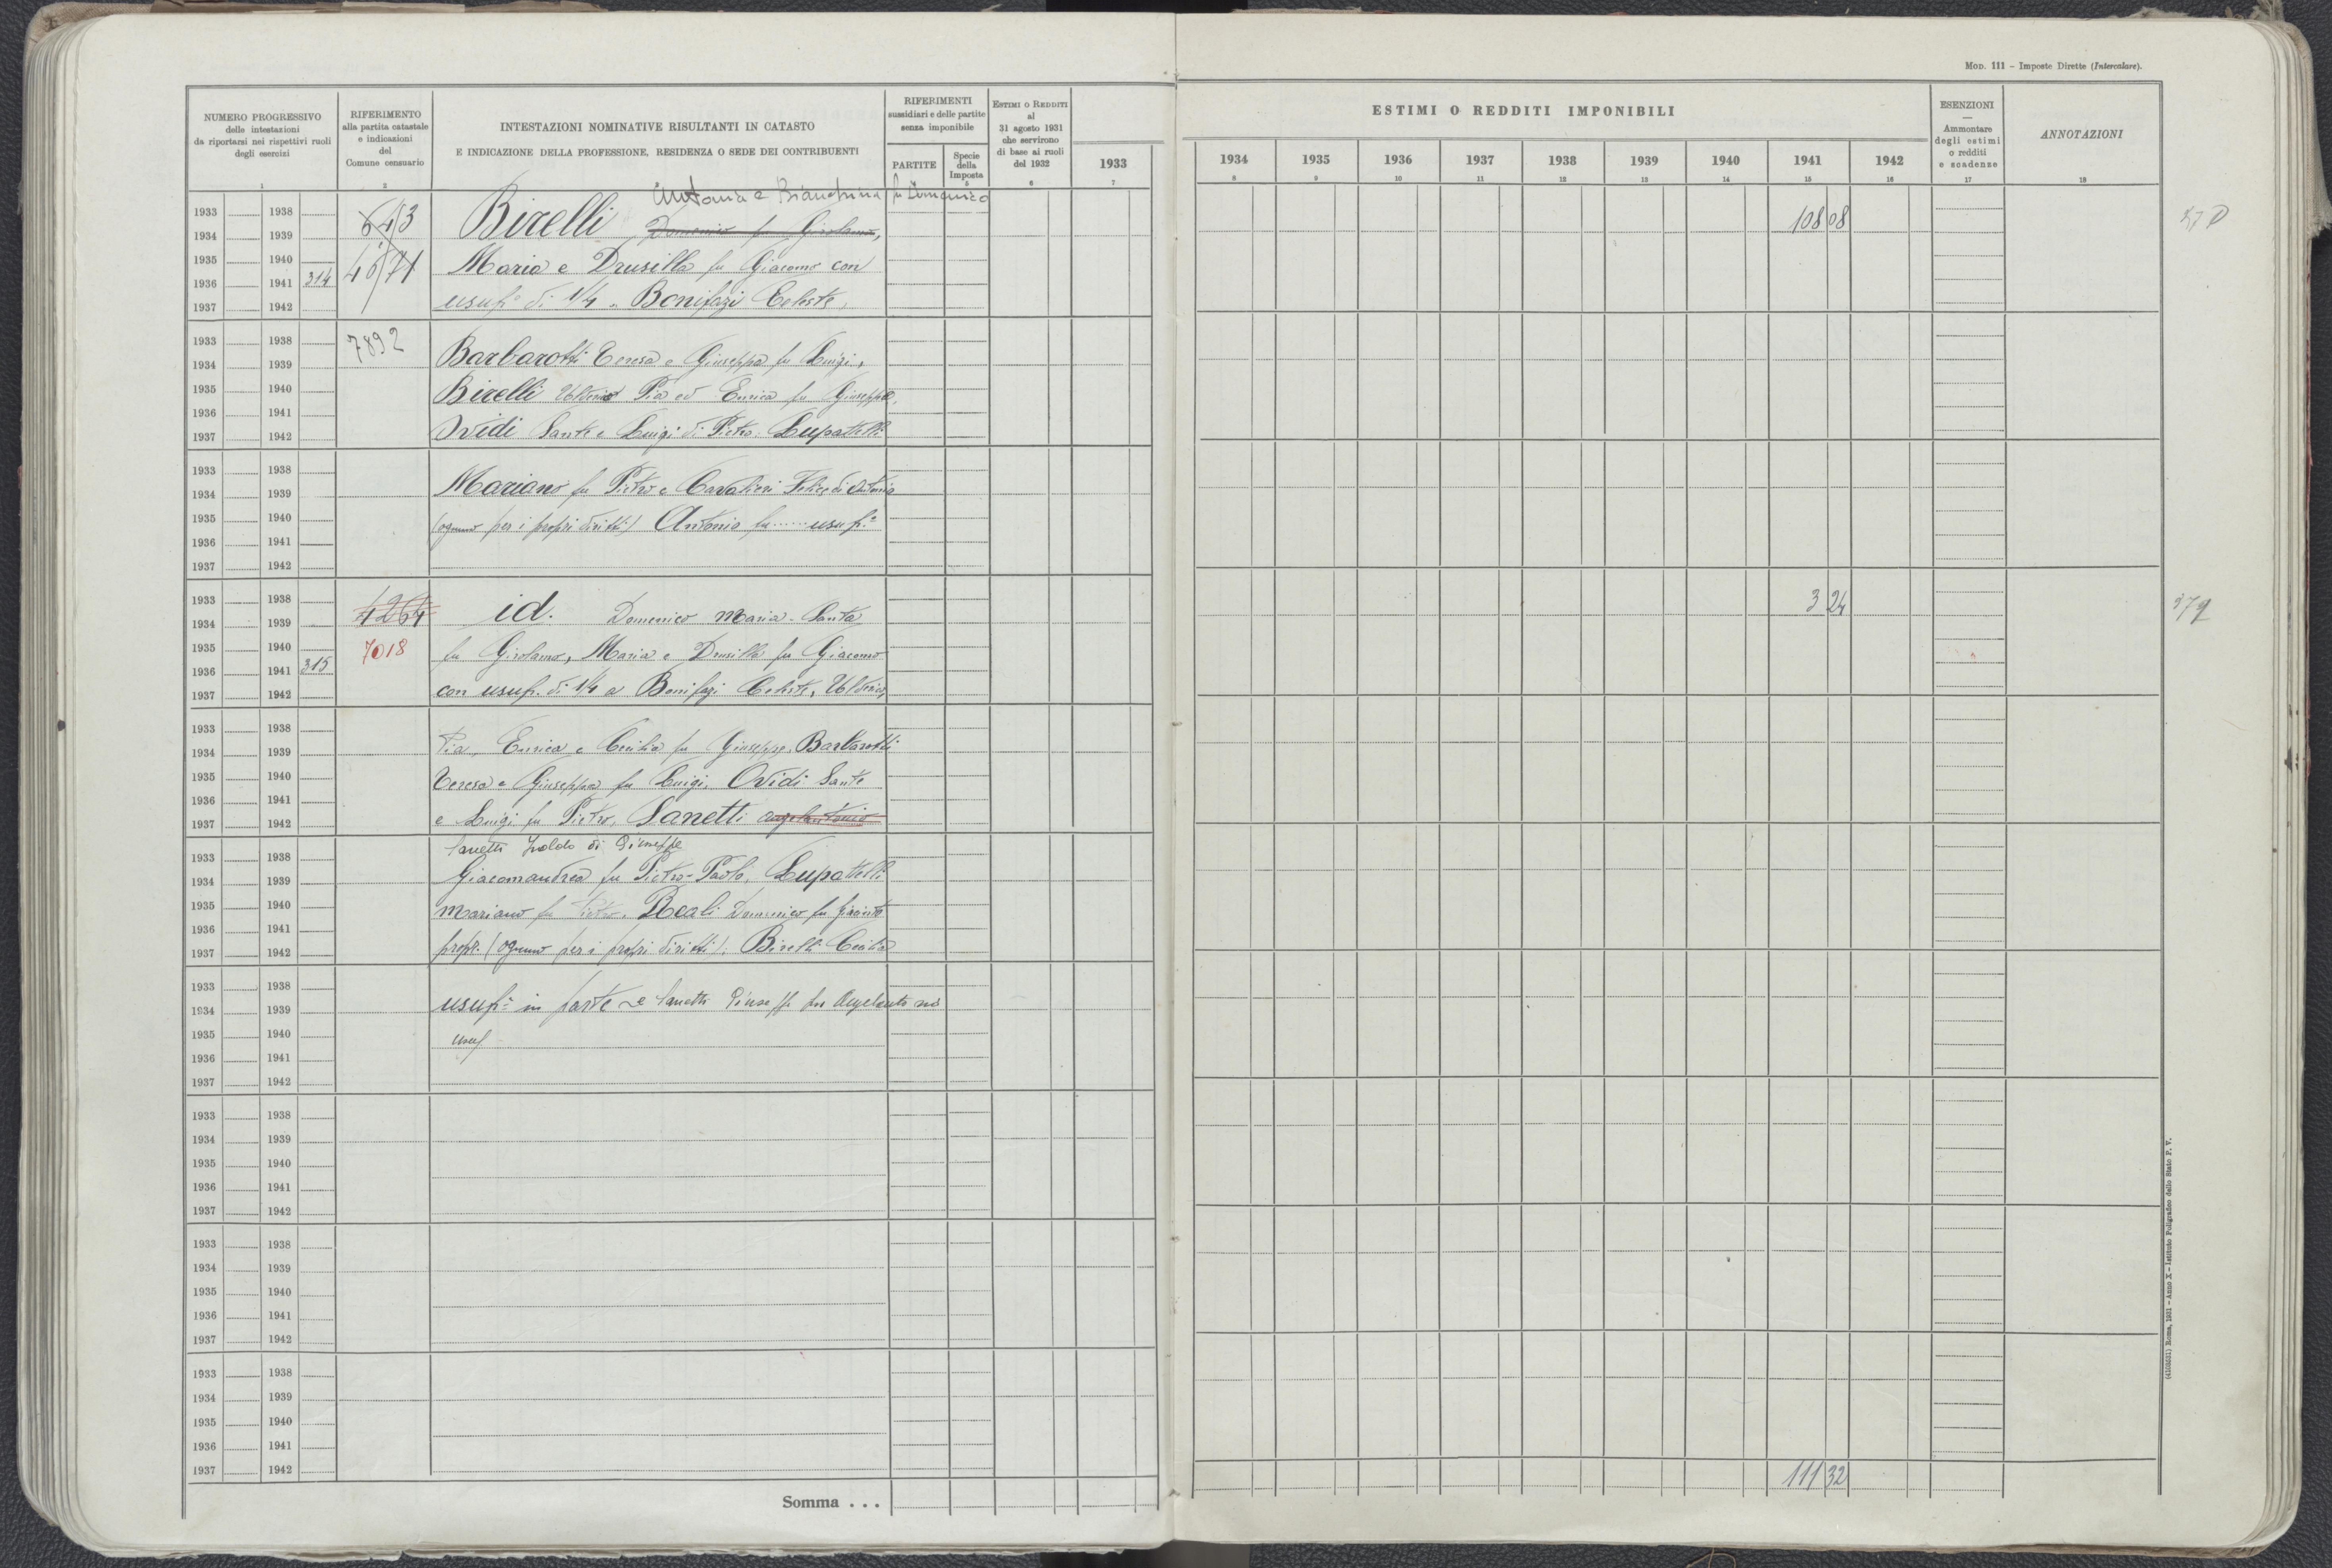 MOD. 111 - Imposte Dirette (Intercalare).
NUMERO PROGRESSIVO
delle intestazioni
da riportarsi nei rispettivi ruoli
degli esercizi
RIFERIMENTO
alla partita catastale
e indicazioni
del
Comune censuario
INTESTAZIONI NOMINATIVE RISULTANTI IN CATASTO
E INDICAZIONE DELLA PROFESSIONE, RESIDENZA O SEDE DEI CONTRIBUENTI
RIFERIMENTI
sussidiari e delle partite
senza imponibile
PARTITE
Specie
della
Imposta
ESTIMI O REDDITI
al
31 agosto 1931
che servirono
di base ai ruoli
del 1932
ESTIMI O REDDITI IMPONIBILI
1933 1934 1935 1936 1937 1938 1939 1940 1941 1942
ESENZIONI
—
Ammontare
degli estimi
o redditi
e scadenze
ANNOTAZIONI
1 2 5 6 7 8 9 10 11 12 13 14 15 16 17 18
Antonia e Bianchina fu Domenico
1933 1938 643 Birelli Domenico fu Girolamo, 108 08
1934 1939
1935 1940 Maria e Drusilla fu Giacomo con
1936 1941 314
1937 1942 usufº di 1/4 a Bonifazi Celeste,
1933 1938 7892
1934 1939 Barbarotti Teresa e Giuseppa fu Luigi,
1935 1940 Birelli Ulderico Pia ed Enrica fu Giuseppe,
1936 1941
1937 1942 Ovidi Sante e Luigi di Pietro, Lupattelli
1933 1938
1934 1939 Mariano fu Pietro e Cavalieri Felice di Antonio
1935 1940 (ognuno per i propri diritti) Antonio fu ...... usufº
1936 1941
1937 1942
1933 1938 4264 id. Domenico Maria-Santa 3 24
1934 1939
1935 1940 7018 fu Girolamo, Maria e Drusilla fu Giacomo
1936 1941 315
1937 1942 con usuf. di 1/4 a Bonifazi Celeste, Ulderico,
1933 1938
1934 1939 Pia, Enrica e Cecilia fu Giuseppe, Barbarotti
1935 1940 Teresa e Giuseppa fu Luigi, Ovidi Sante
1936 1941
1937 1942 e Luigi fu Pietro, Sanetti Angelantonio
1933 1938 Sanetti di Giuseppe
1934 1939 Giacomandrea fu Pietro-Paolo, Lupattelli
1935 1940 Mariano fu Pietro, Reali Domenico fu Giacinto
1936 1941
1937 1942 propr. (ognuno per i propri diritti), Birelli Cecilia
1933 1938
1934 1939 usufº in parte e Sanetti Giuseppe fu Angelantonio
1935 1940 usuf
1936 1941
1937 1942
1933 1938
1934 1939
1935 1940
1936 1941
1937 1942
1933 1938
1934 1939
1935 1940
1936 1941
1937 1942
1933 1938
1934 1939
1935 1940
1936 1941
1937 1942
111 32
Somma . . .
Roma, 1931 - Anno X - Istituto Poligrafico dello Stato P. V.